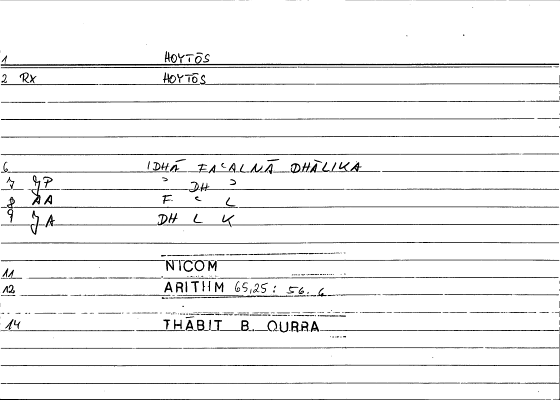 1 HOYTŌS
2 RX HOYTŌS
6 IDHĀ FAʿALNĀ DHĀLIKA
7 JP ʾ DH ʾ
8 AA F ʿ L
9 JA DH L K
11 NICOM
12 ARITHM 65,25: 56.6
14 THĀBIT B. QURRA